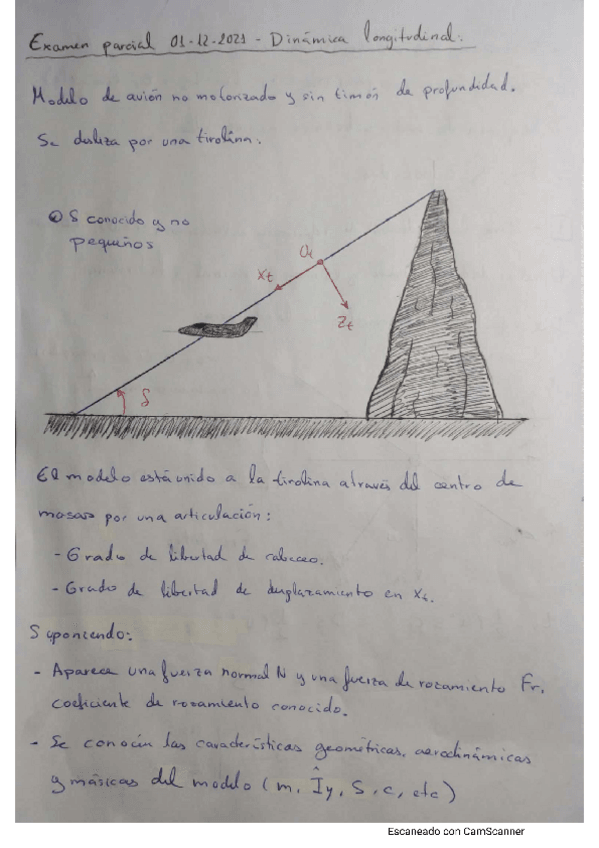 Examen parcial 01-12-2021 - Dinámica longitudinal:
Modelo de avión no motorizado y sin timón de profundidad.
Se desliza por una tirolina:
δ conocido y no
pequeños
Ot
Xt
Zt
δ
El modelo está unido a la tirolina através del centro de
masas por una articulación:
- Grado de libertad de cabeceo.
- Grado de libertad de desplazamiento en Xt.
Suponiendo:
- Aparece una fuerza normal N y una fuerza de rozamiento Fr.
coeficiente de rozamiento conocido.
- Se conocen las características geométricas, aerodinámicas
y másicas del modelo (m, Îy, S, c, etc)
Escaneado con CamScanner